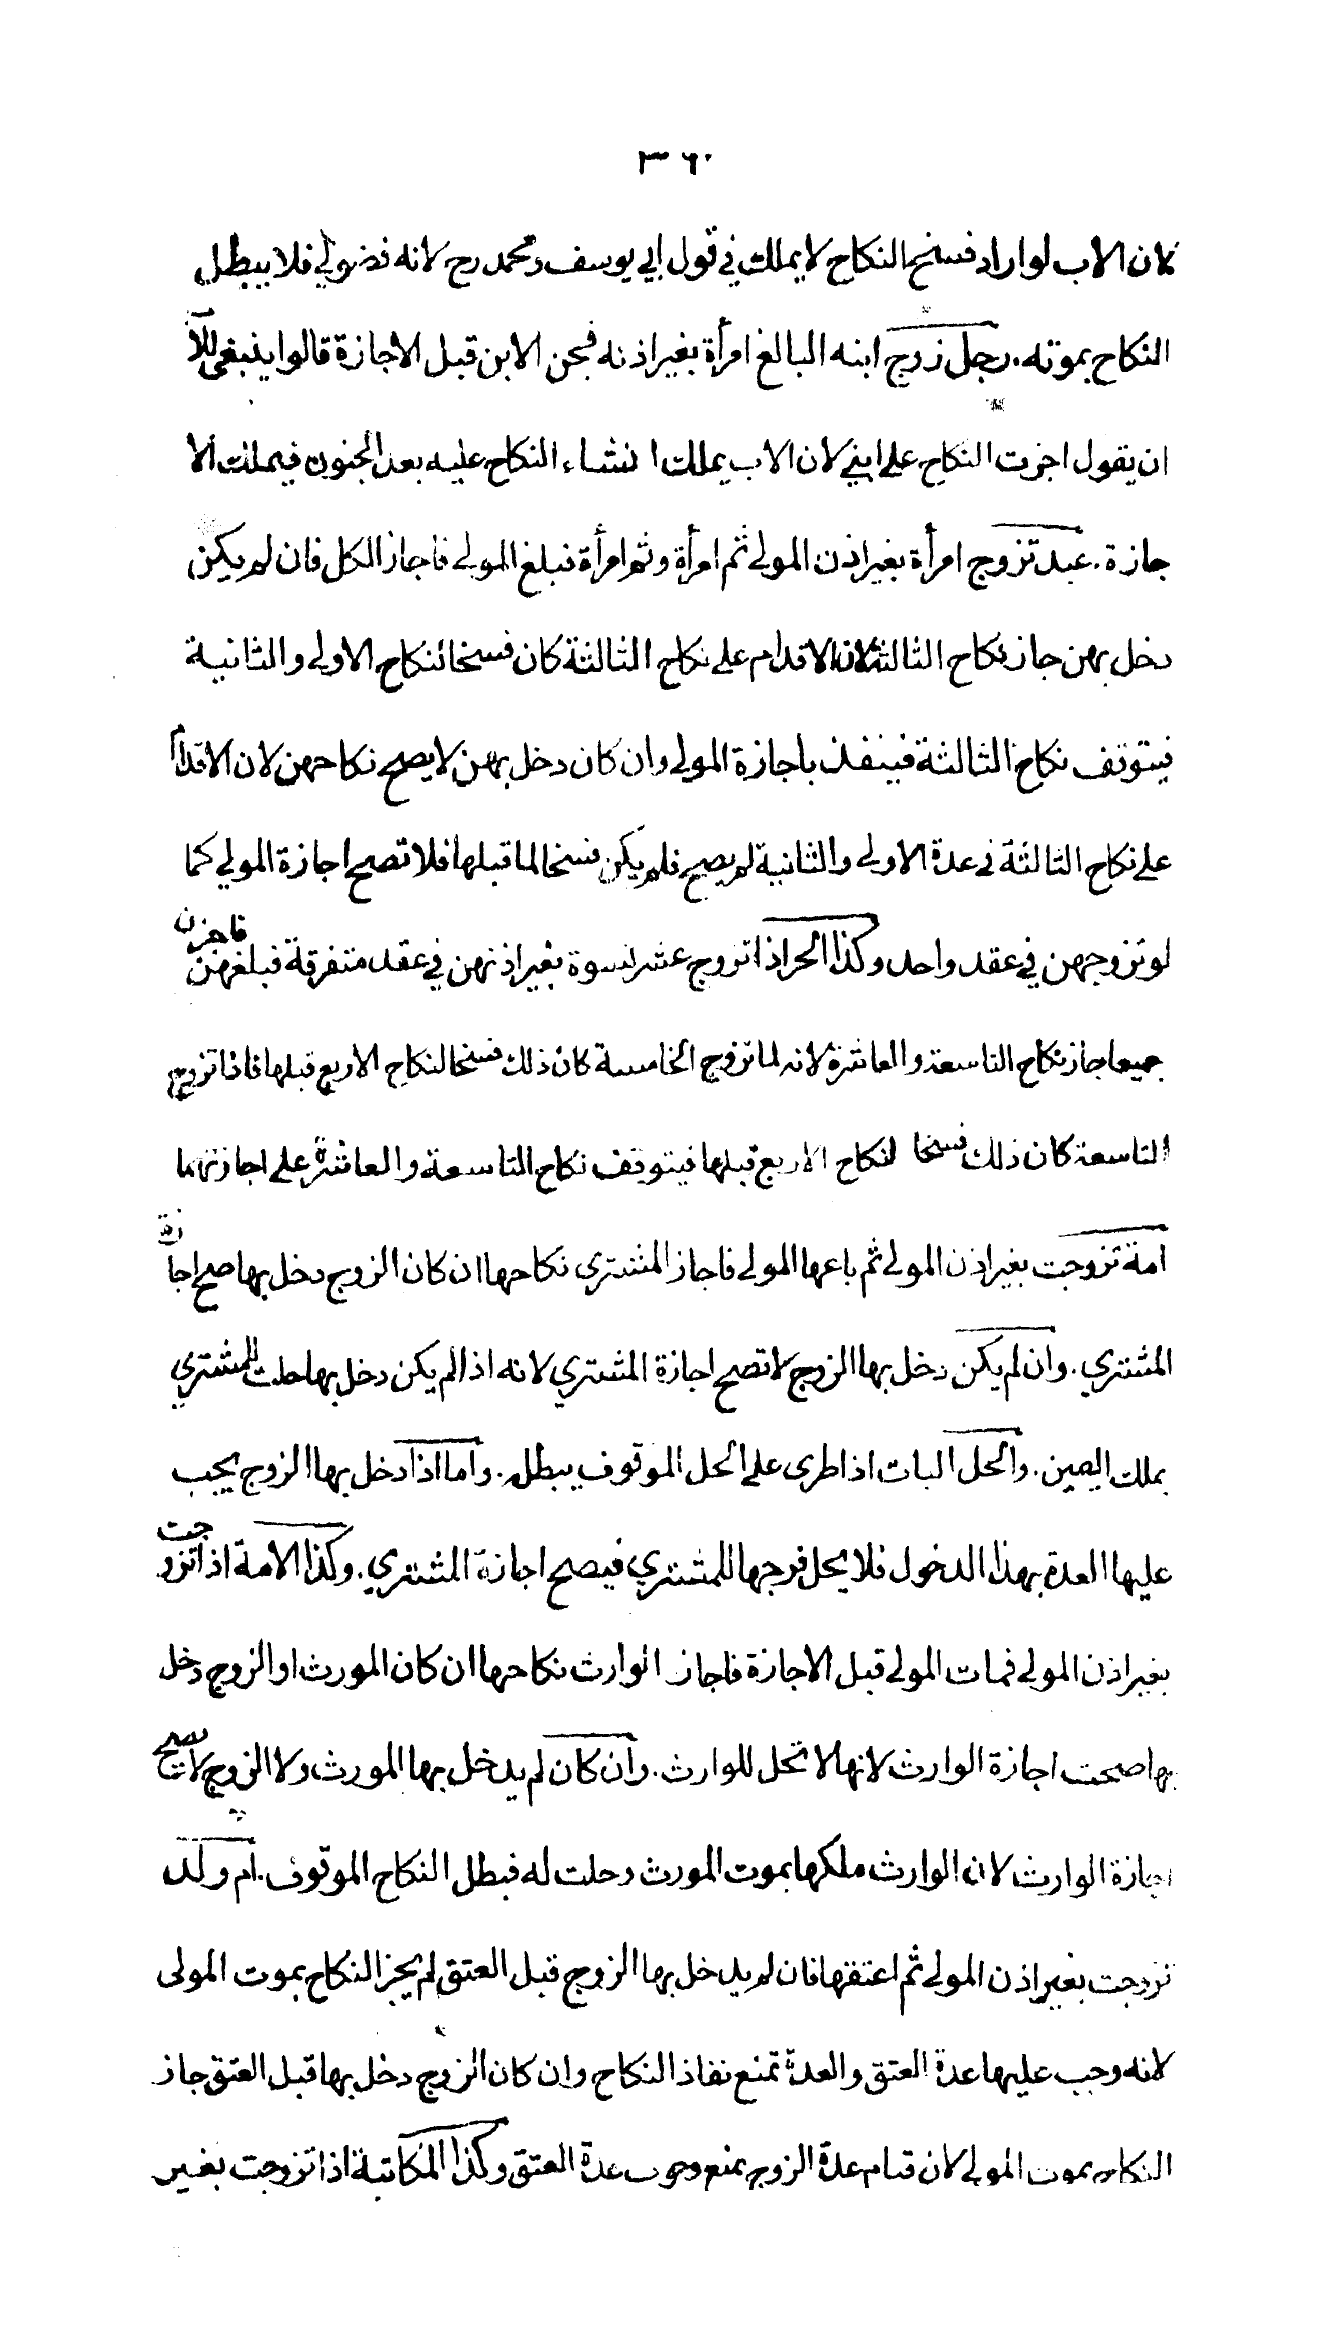 ٣٦٠
لان الاب لو اراد فسخ النكاح لا يملك في قول ابي يوسف ومحمد رح لانه فضولي فلا يبطل
النكاح بموته . رجل زوج ابنه البالغ امرأة بغير اذنه فجن الابن قبل الاجازة قالوا ينبغي للاب
ان يقول اجزت النكاح على ابني لان الاب يملك انشاء النكاح عليه بعد الجنون فيملك الا
جازة . عبد تزوج امرأة بغير اذن المولى ثم امرأة وثم امرأة فبلغ المولى فاجاز الكل فان لم يكن
دخل بهن جاز نكاح الثالثة لان الاقدام على نكاح الثالثة كان فسخا لنكاح الاولى والثانية
فيتوقف نكاح الثالثة فينفذ باجازة المولى وان كان دخل بهن لا يصح نكاحهن لان الاقدام
على نكاح الثالثة في عدة الاولى والثانية لم يصح فلم يكن فسخا لما قبلها فلا تصح اجازة المولى كما
لو تزوجهن في عقد واحد وكذا الحر اذا تزوج عشر نسوة بغير اذنهن في عقد متفرقة فبلغهن فاجزن
جميعا جاز نكاح التاسعة والعاشرة لانه لما تزوج الخامسة كان ذلك فسخا لنكاح الاربع قبلها فاذا تزوج
التاسعة كان ذلك فسخا لنكاح الاربع قبلها فيتوقف نكاح التاسعة والعاشرة على اجازتهما
امة تزوجت بغير اذن المولى ثم باعها المولى فاجاز المشتري نكاحها ان كان الزوج دخل بها صح اجازة
المشتري . وان لم يكن دخل بها الزوج لا تصح اجازة المشتري لانه اذا لم يكن دخل بها حلت للمشتري
بملك اليمين . والحل البات اذا طرى على الحل الموقوف يبطله . واما اذا دخل بها الزوج يجب
عليها العدة بهذا الدخول فلا يحل فرجها للمشتري فيصح اجازة المشتري . وكذا الامة اذا تزوجت
بغير اذن المولى فمات المولى قبل الاجازة فاجاز الوارث نكاحها ان كان المورث او الزوج دخل
بها صحت اجازة الوارث لانها لا تحل للوارث . وان كان لم يدخل بها المورث ولا الزوج لا تصح
اجازة الوارث لان الوارث ملكها بموت المورث وحلت له فبطل النكاح الموقوف . ام ولد
تزوجت بغير اذن المولى ثم اعتقها فان لم يدخل بها الزوج قبل العتق لم يجز النكاح بموت المولى
لانه وجب عليها عدة العتق والعدة تمنع نفاذ النكاح وان كان الزوج دخل بها قبل العتق جاز
النكاح بموت المولى لان قيام عدة الزوج يمنع وجوب عدة العتق وكذا المكاتبة اذا تزوجت بغير